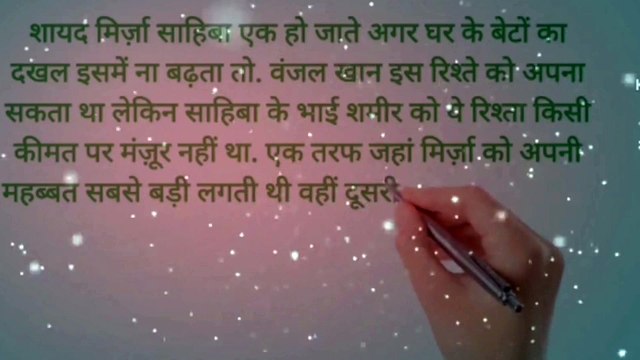 शायद मिर्ज़ा साहिबा एक हो जाते अगर घर के बेटों का
दखल इसमें ना बढ़ता तो. वंजल खान इस रिश्ते को अपना
सकता था लेकिन साहिबा के भाई शमीर को ये रिश्ता किसी
कीमत पर मंज़ूर नहीं था. एक तरफ जहां मिर्ज़ा को अपनी
महब्बत सबसे बड़ी लगती थी वहीं दूसरी